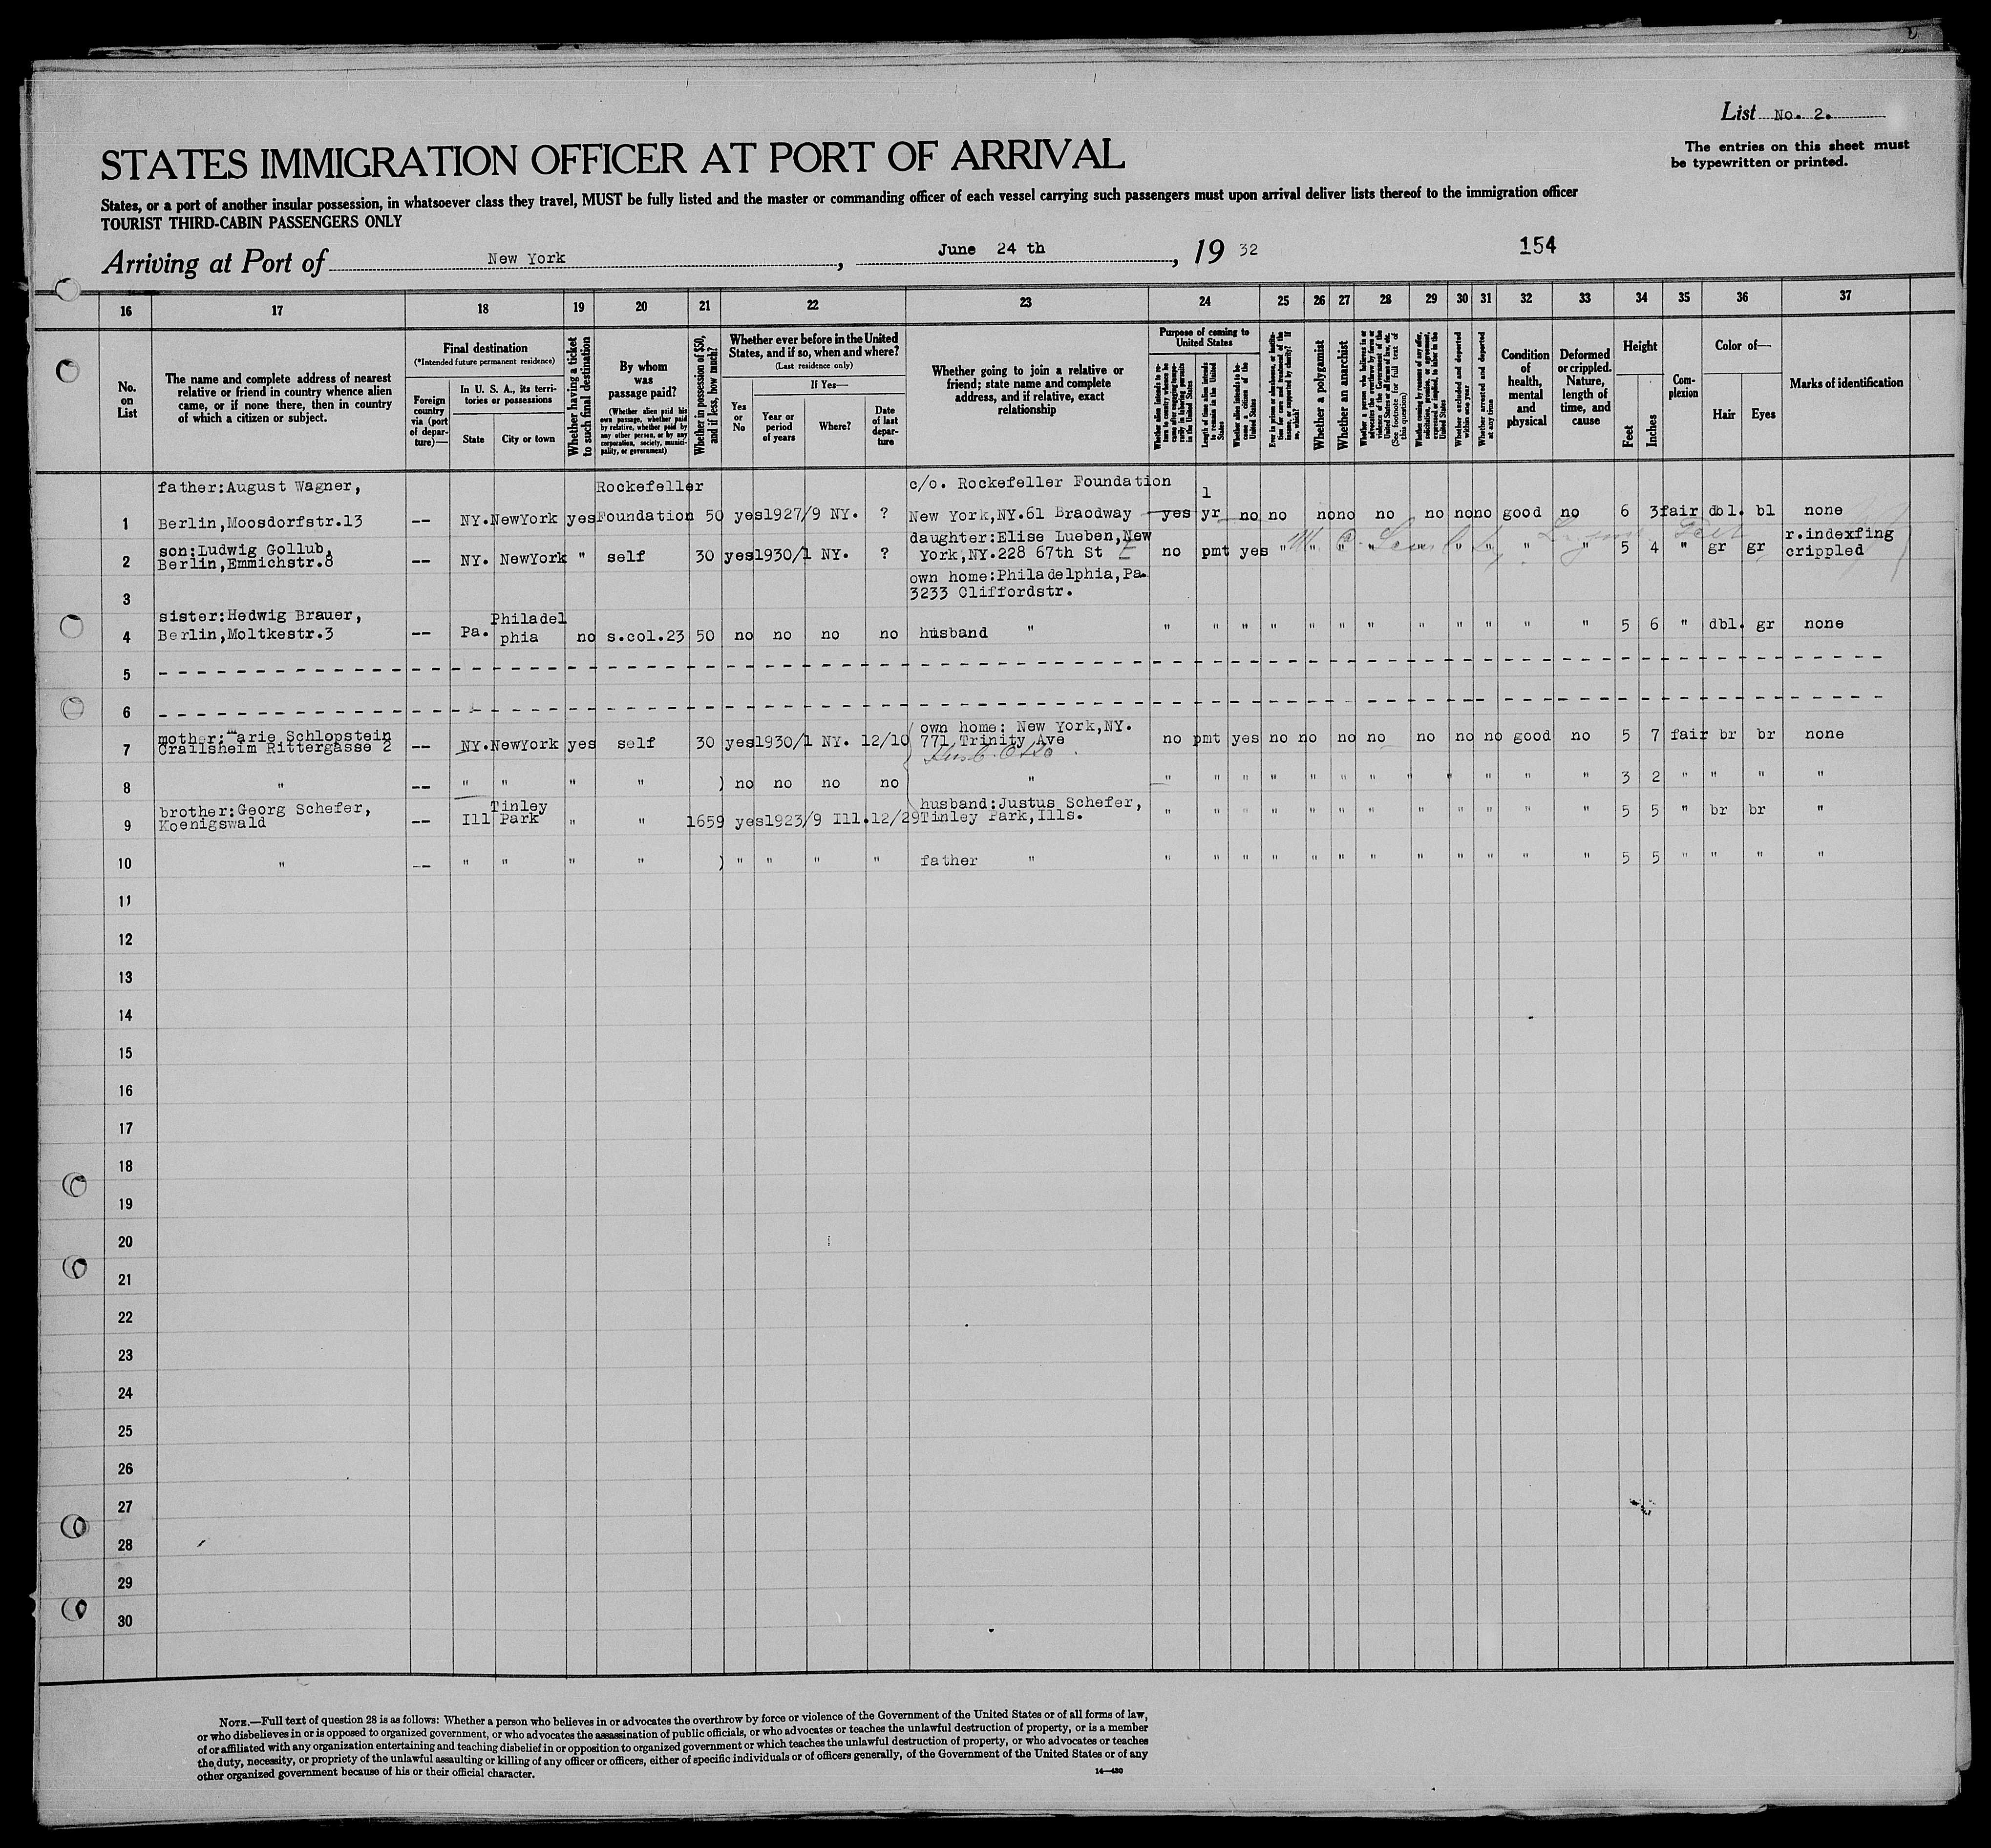 List No. 2.
The entries on this sheet must
be typewritten or printed.
STATES IMMIGRATION OFFICER AT PORT OF ARRIVAL
States, or a port of another insular possession, in whatsoever class they travel, MUST be fully listed and the master or commanding officer of each vessel carrying such passengers must upon arrival deliver lists thereof to the immigration officer
TOURIST THIRD-CABIN PASSENGERS ONLY
Arriving at Port of New York, June 24 th, 19 32 154
16 17 18 19 20 21 22 23 24 25 26 27 28 29 30 31 32 33 34 35 36 37
No. on List
The name and complete address of nearest
relative or friend in country whence alien
came, or if none there, then in country
of which a citizen or subject.
Final destination
(*Intended future permanent residence)
Foreign country via (port of departure)—
In U. S. A., its territories or possessions
State
City or town
Whether having a ticket to such final destination
By whom was passage paid?
(Whether alien paid his own passage, whether paid by relative, whether paid by any other person, or by any corporation, society, municipality, or government)
Whether in possession of $50, and if less, how much?
Whether ever before in the United States, and if so, when and where?
(Last residence only)
Yes or No
If Yes—
Year or period of years
Where?
Date of last departure
Whether going to join a relative or
friend; state name and complete
address, and if relative, exact
relationship
Purpose of coming to United States
Length of time alien intends to remain in the United States
Whether alien intends to become a citizen of the United States
Whether a polygamist
Whether an anarchist
Whether excluded and deported within one year
Whether arrested and deported at any time
Condition of health, mental and physical
Deformed or crippled. Nature, length of time, and cause
Height
Feet
Inches
Complexion
Color of—
Hair
Eyes
Marks of identification
father:August Wagner, Rockefeller c/o. Rockefeller Foundation 1
1 Berlin,Moosdorfstr.13 -- NY. NewYork yes Foundation 50 yes 1927/9 NY. ? New York,NY.61 Braodway yes yr no no no no no no no no good no 6 3 fair dbl. bl none
son:Ludwig Gollub, daughter:Elise Lueben,New r.indexfing
2 Berlin,Emmichstr.8 -- NY. NewYork " self 30 yes 1930/1 NY. ? York,NY.228 67th St E no pmt yes " " " " " " " " " 5 4 " gr gr crippled
own home:Philadelphia,Pa.
3 3233 Cliffordstr.
sister:Hedwig Brauer, Philadel
4 Berlin,Moltkestr.3 -- Pa. phia no s.col.23 50 no no no no husband " " " " " " " " " " " " " 5 6 " dbl. gr none
5
6
mother:Marie Schlopstein own home: New York,NY.
7 Crailsheim Rittergasse 2 -- NY. NewYork yes self 30 yes 1930/1 NY. 12/10 771 Trinity Ave no pmt yes no no no no no no no good no 5 7 fair br br none
Husb. Otto
8 " -- " " " " ) no no no no " " " " " " " " " " " " " 3 2 " " " "
brother:Georg Schefer, Tinley husband:Justus Schefer,
9 Koenigswald -- Ill Park " " 1659 yes 1923/9 Ill. 12/29 Tinley Park,Ills. " " " " " " " " " " " " 5 5 " br br "
10 " -- " " " " ) " " " " father " " " " " " " " " " " " " 5 5 " " " "
11
12
13
14
15
16
17
18
19
20
21
22
23
24
25
26
27
28
29
30
NOTE.—Full text of question 28 is as follows: Whether a person who believes in or advocates the overthrow by force or violence of the Government of the United States or of all forms of law,
or who disbelieves in or is opposed to organized government, or who advocates the assassination of public officials, or who advocates or teaches the unlawful destruction of property, or is a member
of or affiliated with any organization entertaining and teaching disbelief in or opposition to organized government or which teaches the unlawful destruction of property, or who advocates or teaches
the duty, necessity, or propriety of the unlawful assaulting or killing of any officer or officers, either of specific individuals or of officers generally, of the Government of the United States or of any
other organized government because of his or their official character.
14—430